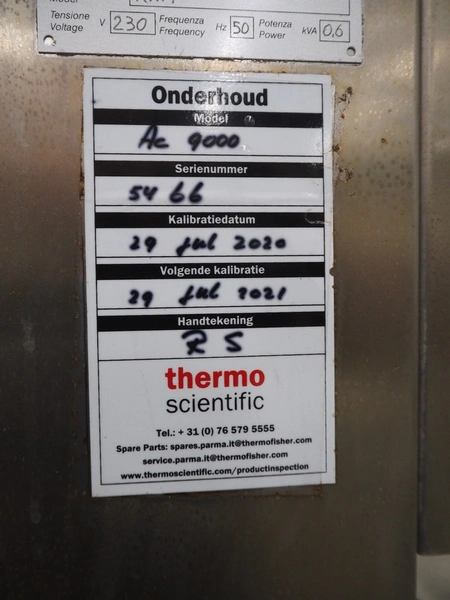 Tensione
Voltage V 230 Frequenza
Frequency Hz 50 Potenza
Power kVA 0,6
Onderhoud
Model
AC 9000
Serienummer
5466
Kalibratiedatum
29 jul 2020
Volgende kalibratie
29 jul 2021
Handtekening
R S
thermo
scientific
Tel.: + 31 (0) 76 579 5555
Spare Parts: spares.parma.it@thermofisher.com
service.parma.it@thermofisher.com
www.thermoscientific.com/productinspection